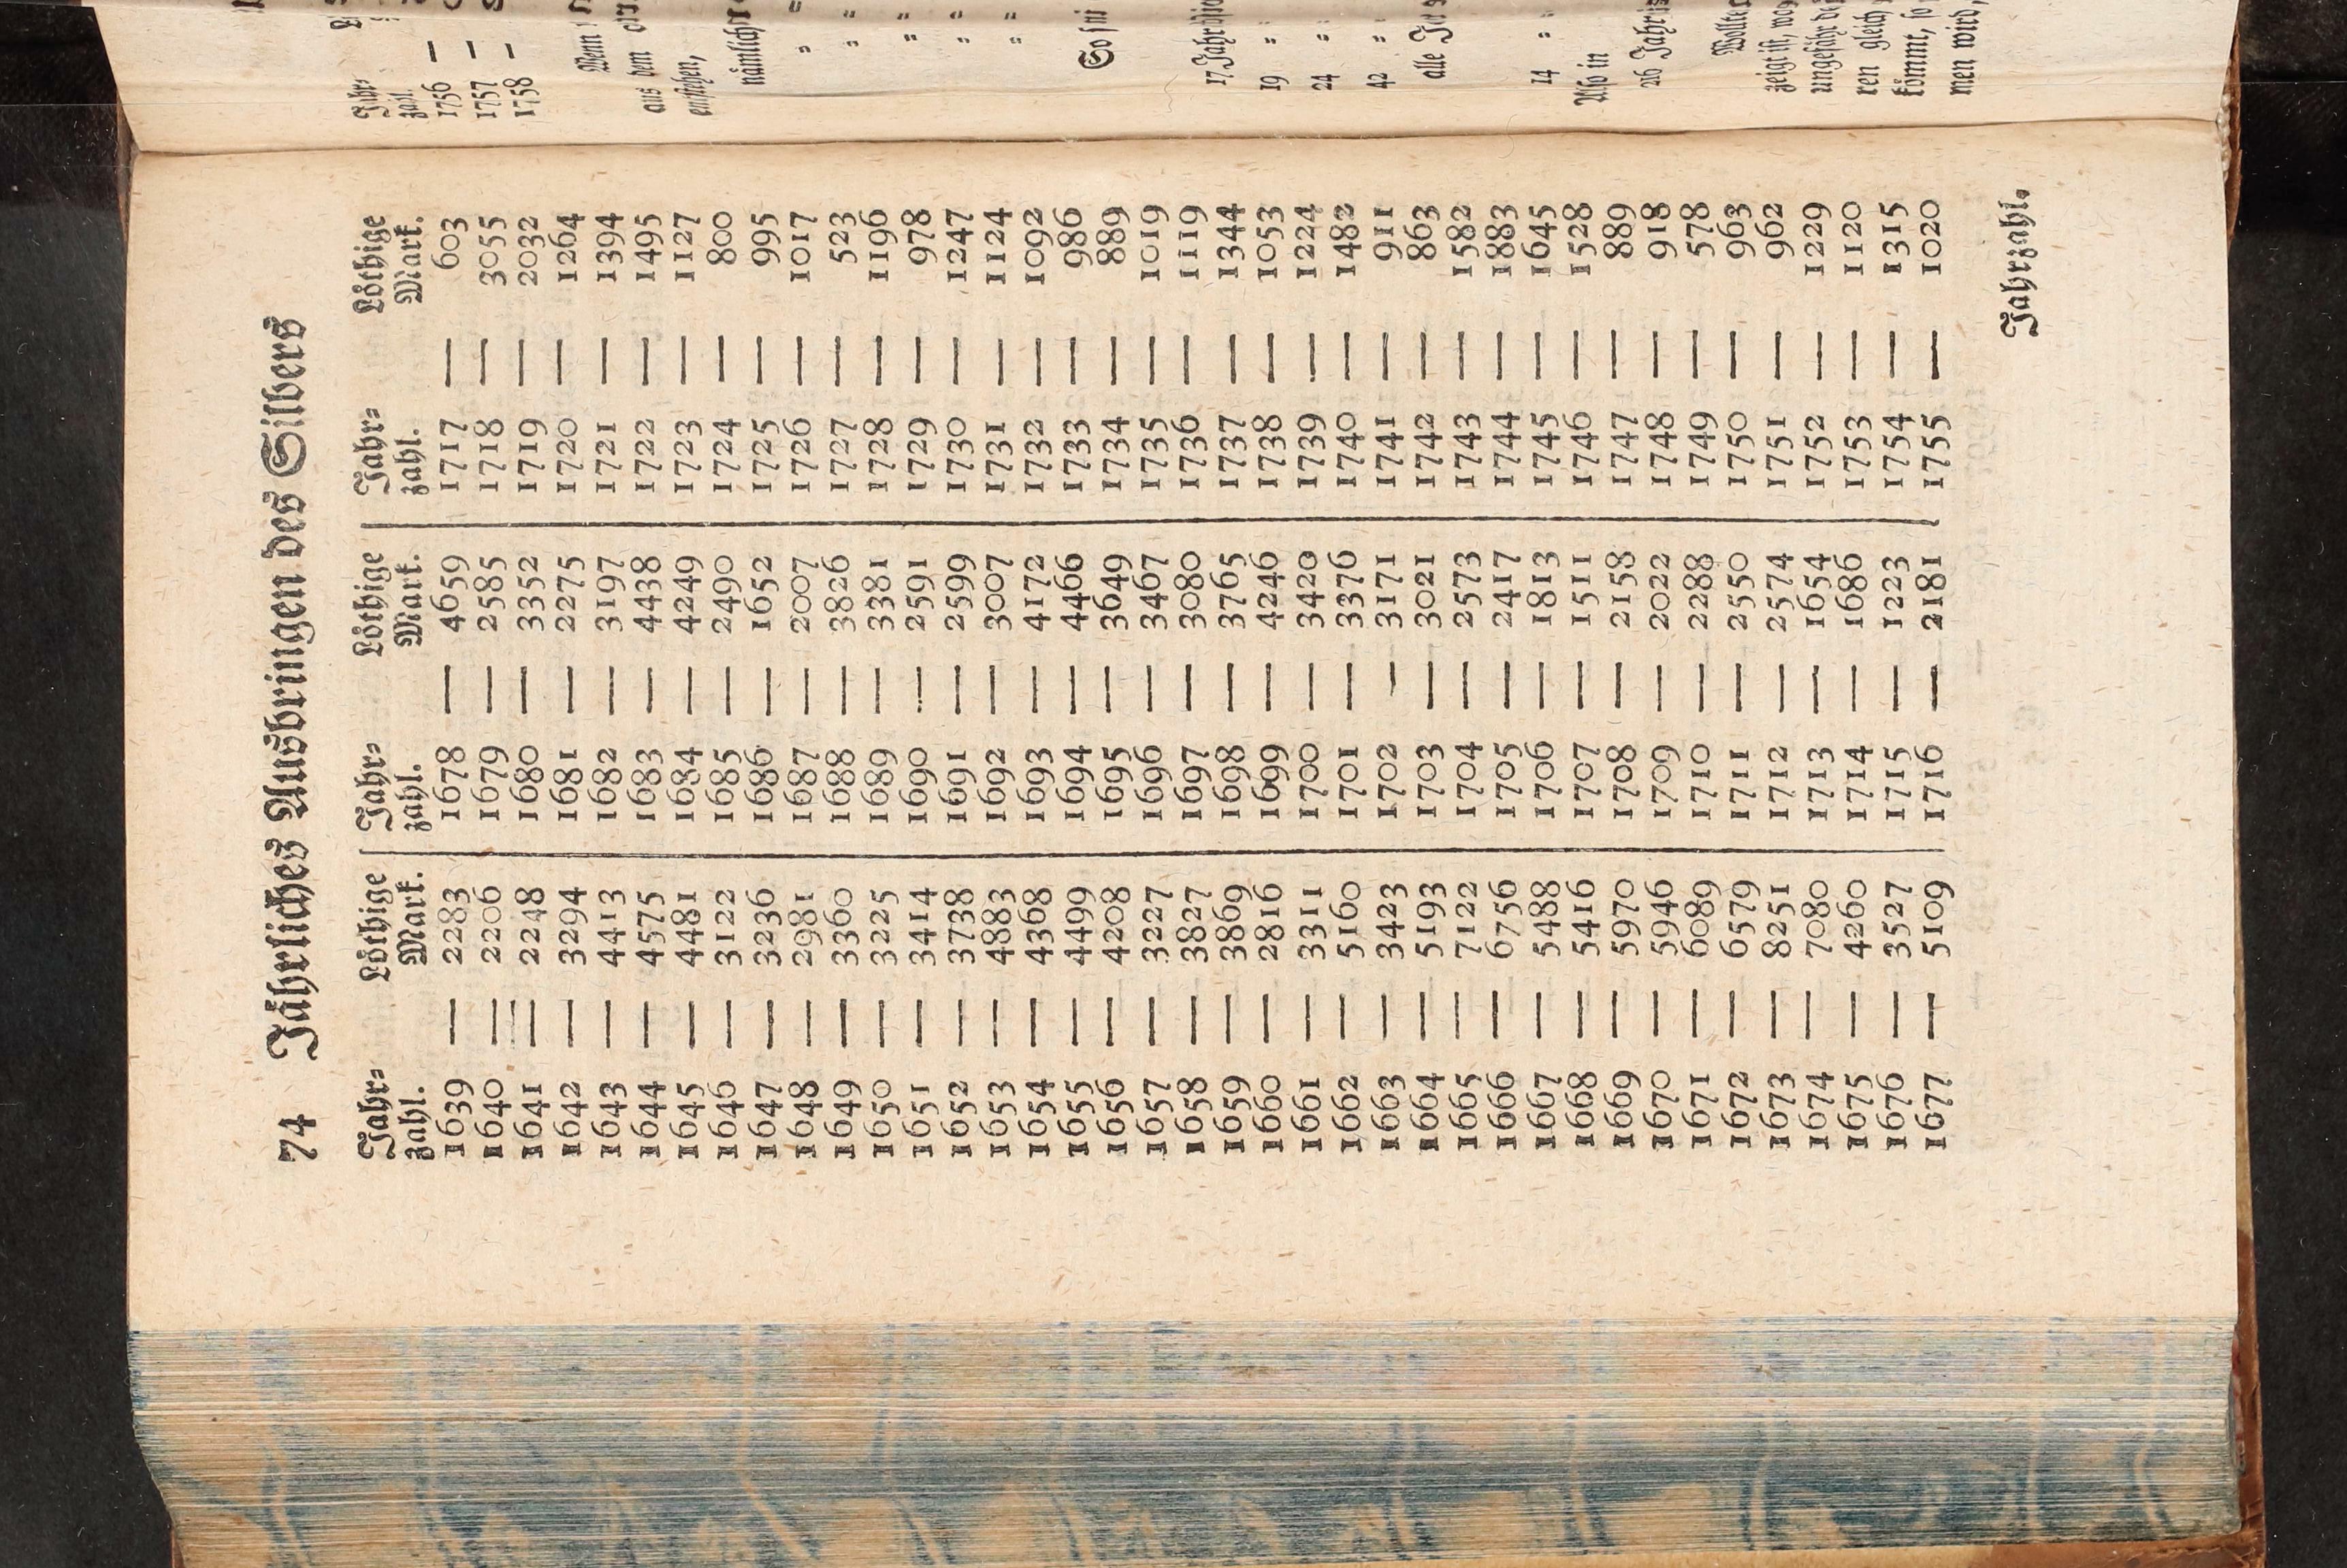 74 Jährliches Ausbringen des Silbers
Jahr= Löthige | Jahr= Löthige | Jahr= Löthige
zahl. Mark. zahl. Mark. zahl. Mark.
1639 — 2283 1678 — 4659 1717 — 603
1640 — 2206 1679 — 2585 1718 — 3055
1641 — 2248 1680 — 3352 1719 — 2032
1642 — 3294 1681 — 2275 1720 — 1264
1643 — 4413 1682 — 3197 1721 — 1394
1644 — 4575 1683 — 4438 1722 — 1495
1645 — 4481 1684 — 4249 1723 — 1127
1646 — 3122 1685 — 2490 1724 — 800
1647 — 3236 1686 — 1652 1725 — 995
1648 — 2981 1687 — 2007 1726 — 1017
1649 — 3360 1688 — 3826 1727 — 523
1650 — 3225 1689 — 3381 1728 — 1196
1651 — 3414 1690 — 2591 1729 — 978
1652 — 3738 1691 — 2599 1730 — 1247
1653 — 4883 1692 — 3007 1731 — 1124
1654 — 4368 1693 — 4172 1732 — 1092
1655 — 4499 1694 — 4466 1733 — 986
1656 — 4208 1695 — 3649 1734 — 889
1657 — 3227 1696 — 3467 1735 — 1019
1658 — 3827 1697 — 3080 1736 — 1119
1659 — 3869 1698 — 3765 1737 — 1344
1660 — 2816 1699 — 4246 1738 — 1053
1661 — 3311 1700 — 3420 1739 — 1224
1662 — 5160 1701 — 3376 1740 — 1482
1663 — 3423 1702 — 3171 1741 — 911
1664 — 5193 1703 — 3021 1742 — 863
1665 — 7122 1704 — 2573 1743 — 1582
1666 — 6756 1705 — 2417 1744 — 1883
1667 — 5488 1706 — 1813 1745 — 1645
1668 — 5416 1707 — 1511 1746 — 1528
1669 — 5970 1708 — 2158 1747 — 889
1670 — 5946 1709 — 2022 1748 — 918
1671 — 6089 1710 — 2288 1749 — 578
1672 — 6579 1711 — 2550 1750 — 963
1673 — 8251 1712 — 2574 1751 — 962
1674 — 7080 1713 — 1654 1752 — 1229
1675 — 4260 1714 — 1686 1753 — 1120
1676 — 3527 1715 — 1223 1754 — 1315
1677 — 5109 1716 — 2181 1755 — 1020
Jahrzahl.
Jahr=
zahl.
1756 —
1757 —
1758 —
Wenn
aus dem
entstehen,
nämlich
So
17 Jahr
19 =
24 =
42 =
alle
14 =
Also in
26 Jahr
Wollte
zeigt ist,
ungefähr
ren gleich
kömmt, so
men wird,